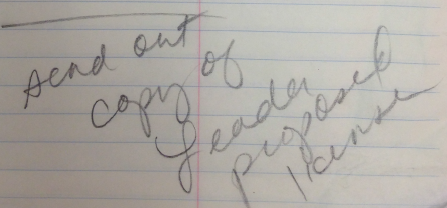 send out
copy of
Leader
proposed
license